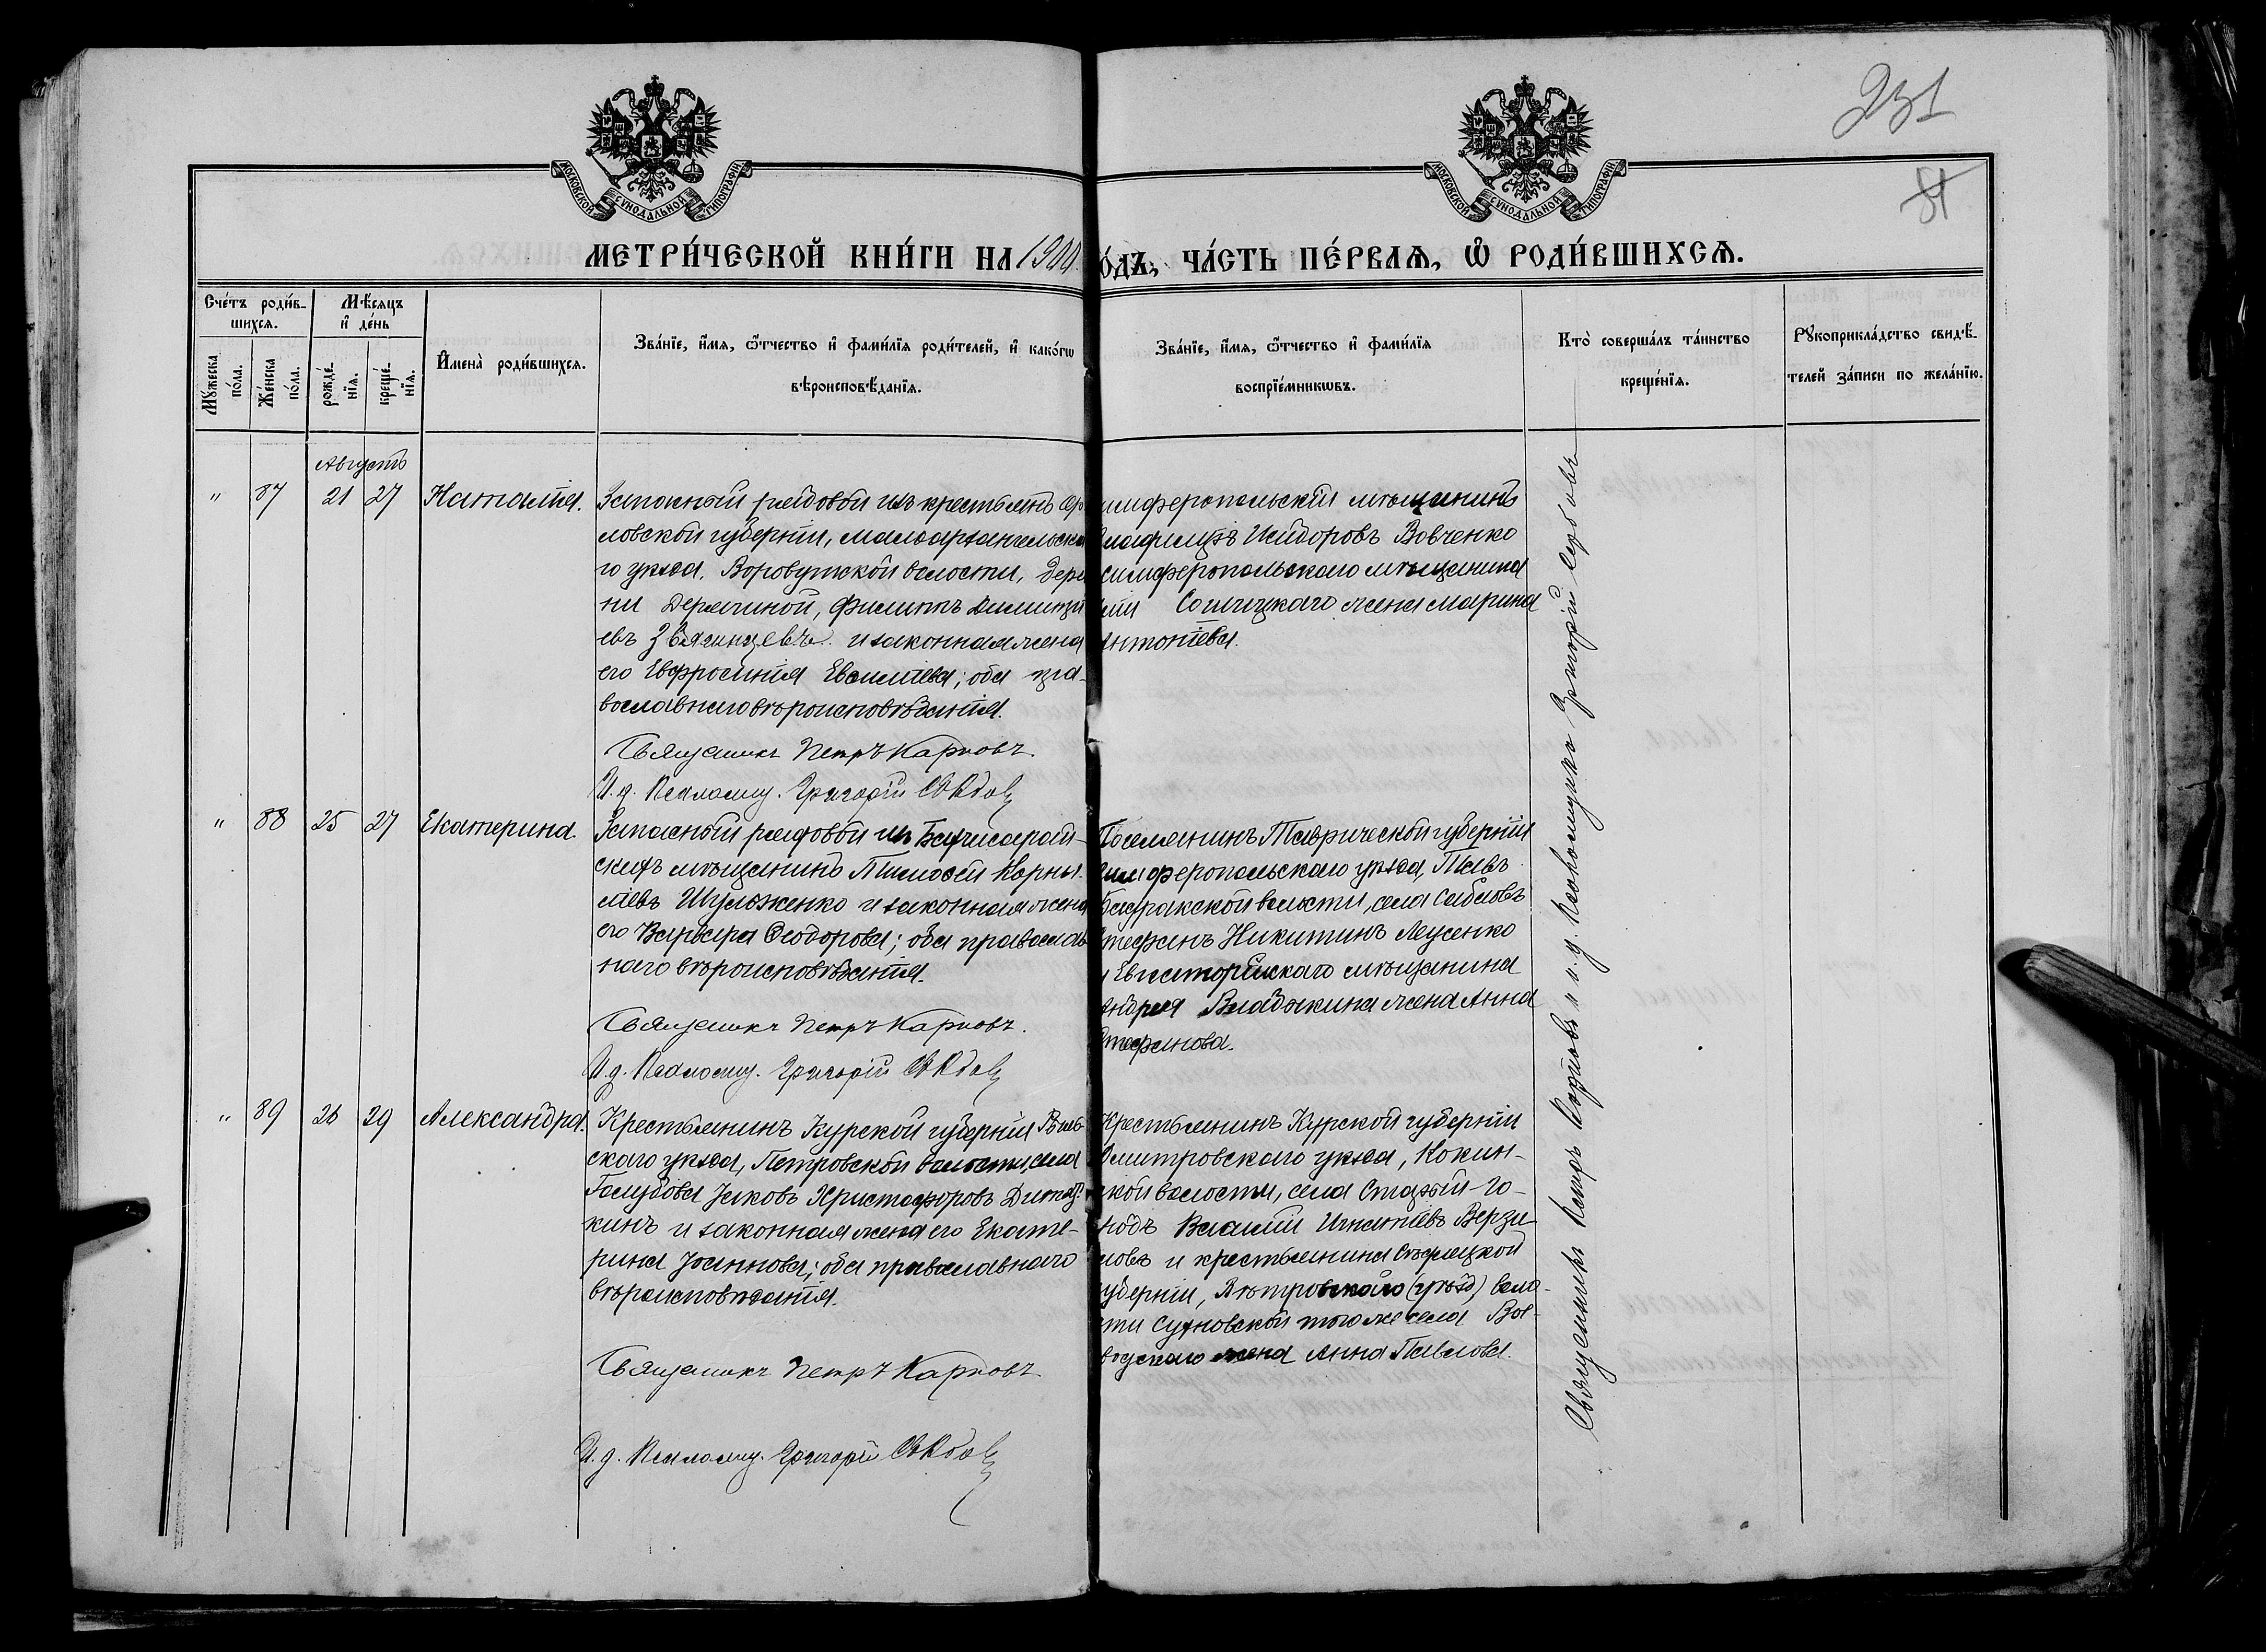 231
81
МОСКОВСКОЙ СѴНОДАЛЬНОЙ ТИПОГРАФІИ
МОСКОВСКОЙ СѴНОДАЛЬНОЙ ТИПОГРАФІИ
МЕТРИ́ЧЕСКОЙ КНИ́ГИ НА 1900 ГО́ДЪ, ЧА́СТЬ ПЕ́РВАѦ, Ѡ҆ РОДИ́ВШИХСѦ.
Сче́тъ роди́в-
шихсѧ.
Мꙋ́жеска по́ла.
Же́нска по́ла.
Мѣ́сѧцъ
и҆ де́нь
рожде́-
нїѧ.
креще́-
нїѧ.
И҆мена̀ роди́вшихсѧ.
Зва́нїе, и҆́мѧ, ѻ҆́тчество и҆ фами́лїѧ роди́телей, и҆ како́гѡ
вѣроисповѣ́данїѧ.
Зва́нїе, и҆́мѧ, ѻ҆́тчество и҆ фами́лїѧ
воспрїе́мникѡвъ.
Кто̀ соверша́лъ та́инство
креще́нїѧ.
Рꙋкоприкла́дство свидѣ́-
телей за́писи по жела́нїю.
Августъ
" 87 21 27 Наталія.
Запасный рядовой изъ крестьянъ Ор
ловской губерніи, Малоархангельска
го уѣзда, Воровутской волости, дере
ни Дерягиной, Филиппъ Димитрі
евъ Звягинцевъ и законная жена
его Евфросинія Евсиліева; оба пра-
вославнаго вѣроисповѣданія.
Священникъ Петръ Карповъ.
И.д. Псаломщ. Григорій
имферопольскій мѣщанинъ
Исидоровъ Вовченко
симферопольскаго мѣщанина
жена Марина
Антоніева.
" 88 25 27 Екатерина.
Запасный рядовой изъ Бахчисарай-
скихъ мѣщанинъ Тимофей Корни-
ліевъ Шульженко и законная жена
его Варвара Ѳеодорова; оба православ
наго вѣроисповѣданія.
Священникъ Петръ Карповъ.
И.д. Псаломщ. Григорій
Поселянинъ Таврической губерніи
Симферопольскаго уѣзда, Тавъ
Бадракской волости, села Сабловъ
Стефанъ Никитинъ Лусенко
и Евпаторійскаго мѣщанина
Андрея Владыкина жена Анна
Стефанова.
" 89 26 29 Александра.
Крестьянинъ Курской губерніи Рыль-
скаго уѣзда, Петровской волости, села
Голубова Іаковъ Христофоровъ
кинъ и законная жена его Екате-
рина Іоаннова; оба православнаго
вѣроисповѣданія.
Священникъ Петръ Карповъ.
И.д. Псаломщ. Григорій
Крестьянинъ Курской губерніи
Дмитровскаго уѣзда, Кокин-
ской волости, села Старый-Го-
родъ Василій Игнатіевъ Верзи-
ловъ и крестьянина
губерніи, (уѣзд) воло-
сти Сухновской того же села Вое-
водскаго жена Анна Павлова.
Священникъ Петръ Карповъ и и.д. Псаломщика Григорій